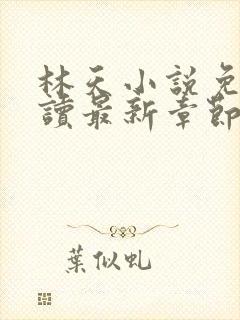 林天小說免
讀最新章節
葉似虬